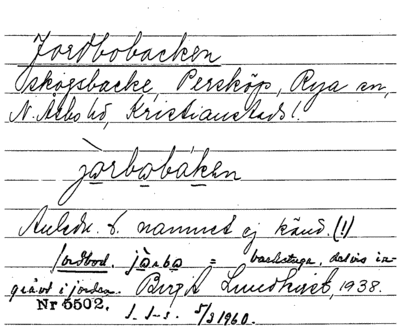 Jordbobacken
skogsbacke, Persköp, Rya sn,
N. Åsbo hd, Kristianstads l.
jo̱rbo̱báken
Anledn. t. namnet ej känd. (!)
Jordbod. = backstuga, delvis in-
grävd i jorden. Birgit Lundkvist, 1938.
Nr 5502. 5/3 1960.